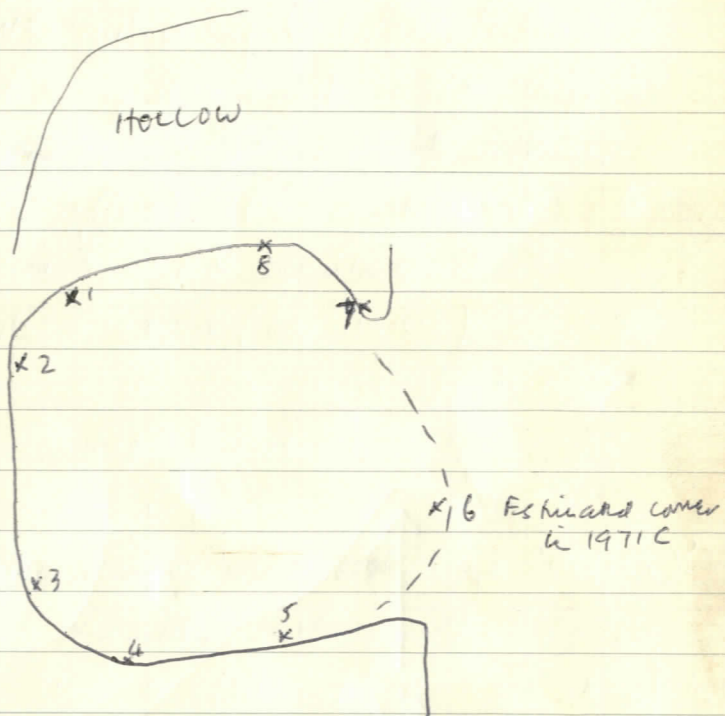 HOLLOW
8
x 1
7 x
x 2
x 6 Estimated corner
in 1971 C
x 3
5
x
4